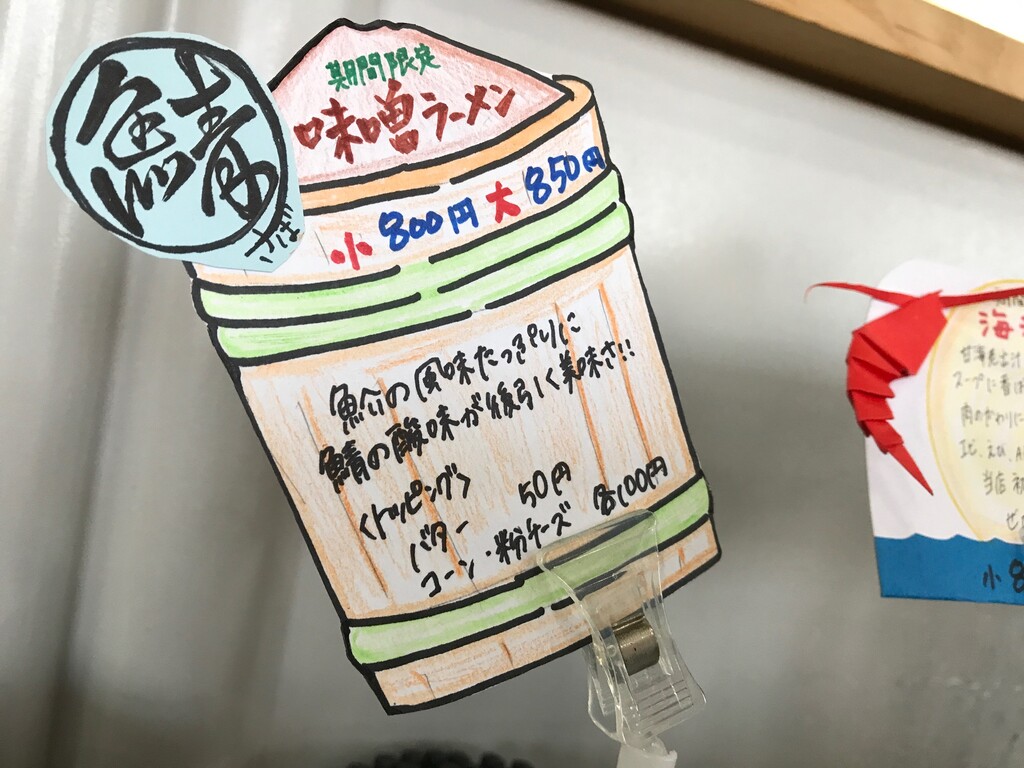 鯖
さば
期間限定
味噌ラーメン
小 800円 大 850円
魚介の風味たっぷりに
鯖の酸味が後引く美味さ!!
<トッピング>
バター 50円
コーン・粉チーズ 各100円
海
甘海老出汁
スープに香ば
肉のかわりに
当店初
ぜ
小 8